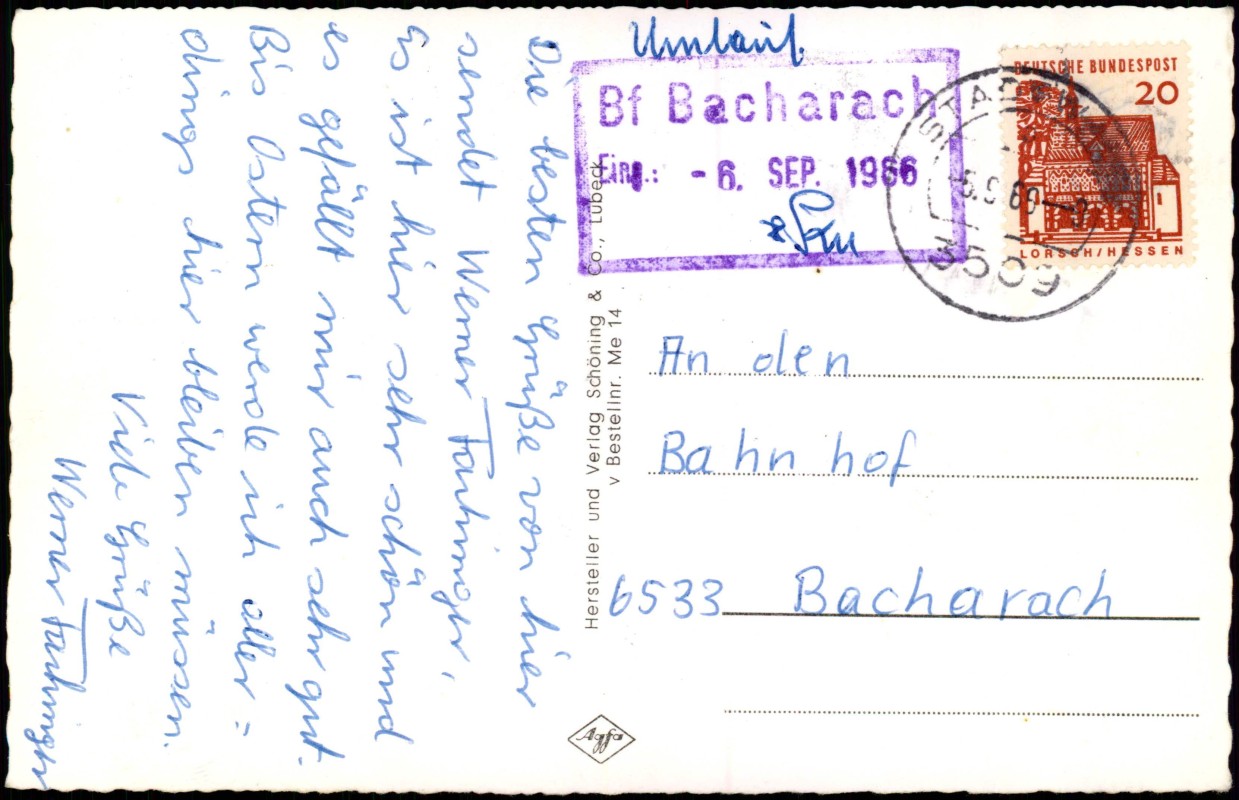 Die besten Grüße von hier
sendet Werner Fahninger,
Es ist hier sehr schön und
es gefällt mir auch sehr gut.
Bis Ostern werde ich aller=
dings hier bleiben müssen.
Viele Grüße
Werner Fahninger
Umlauf.
Bf Bacharach
Eing.: -6. SEP. 1966
DEUTSCHE BUNDESPOST
20
LORSCH/HESSEN
3509
Hersteller und Verlag Schöning & Co., Lübeck
v Bestellnr. Me 14
An den
Bahnhof
6533 Bacharach
Agfa